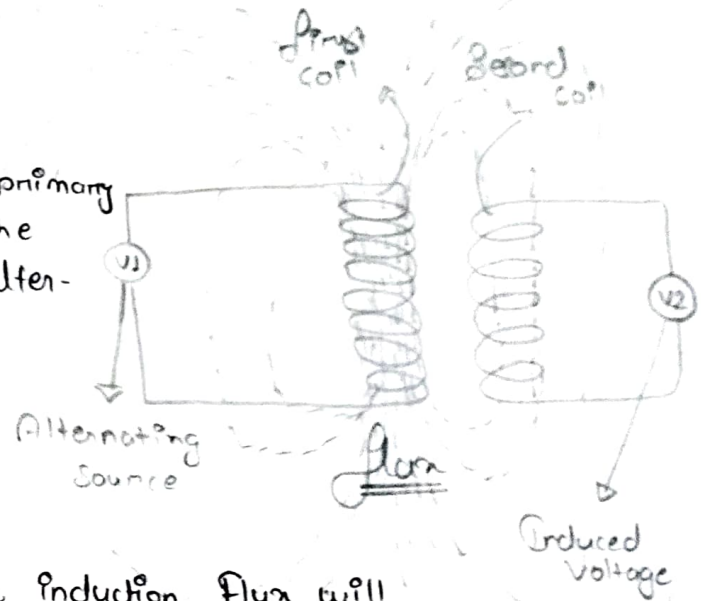 first
coil
Second
coil
primary
ne
alter-
V1
V2
Alternating
Source
flux
Induced
voltage
induction flux will